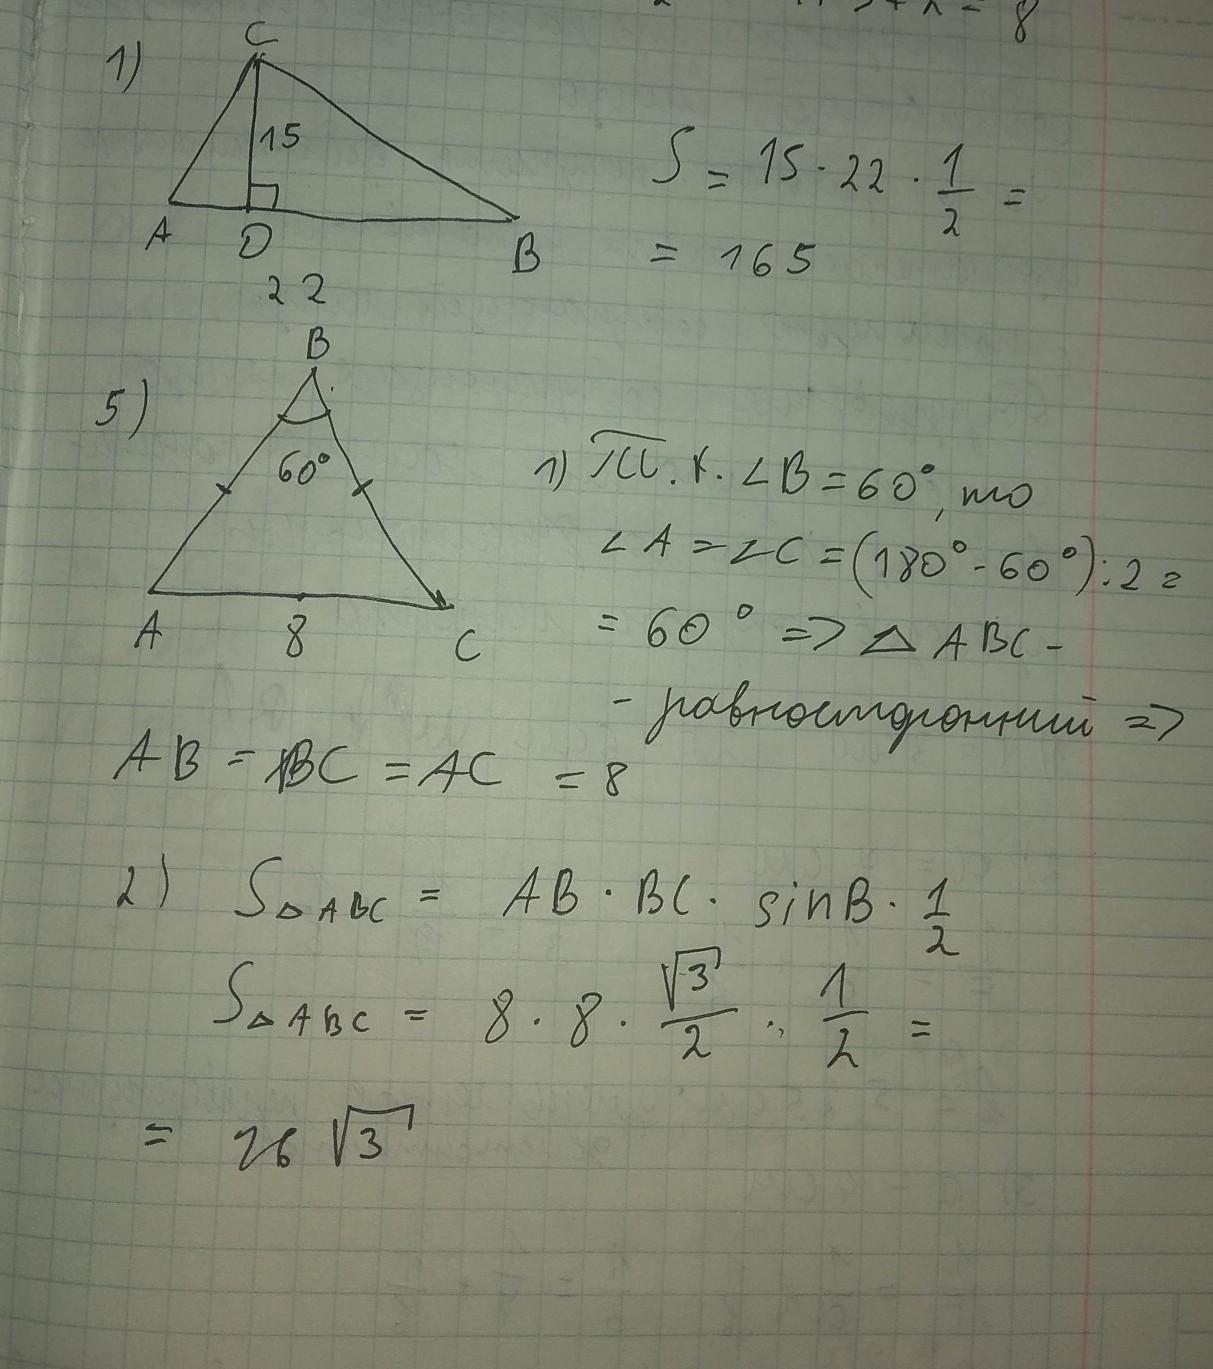 = 8
1)
C
15
A D B
22
S = 15 · 22 · 1/2 =
= 165
5)
B
60°
A 8 C
1) Т.к. ∠B = 60°, то
∠A = ∠C = (180° - 60°) : 2 =
= 60° => △ ABC -
- равносторонний =>
AB = BC = AC = 8
2) S△ABC = AB · BC · sinB · 1/2
S△ABC = 8 · 8 · √3/2 · 1/2 =
= 26 √3